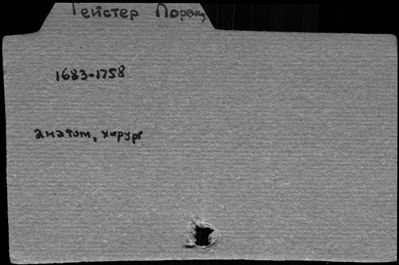 Гейстер Лоренц
1683-1758
анатом, хирург